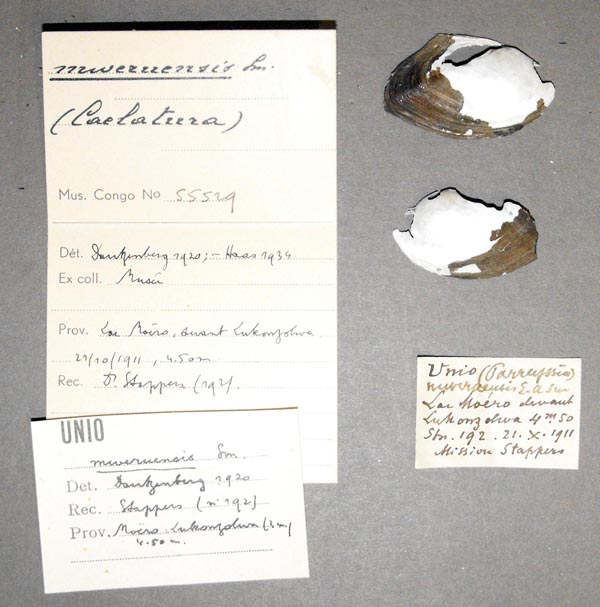 mweruensis Sm.
(Caelatura)
Mus. Congo No 55529
Dét. Dautzenberg 1920; - Haas 1934
Ex coll. Musée
Prov. Lac Moëro, devant Lukonzolwa
21/10/1911, 4.50m
Rec. Stappers (192).
UNIO
mweruensis Sm.
Det. Dautzenberg 1920
Rec. Stappers (n° 192)
Prov. Moëro. Lukonzolwa
4.50 m.
Unio (Parreyssia)
mweruensis E.A. Sm
Lac Moëro devant
Lukonzolwa 4m50
Stn. 192. 21. X. 1911
Mission Stappers